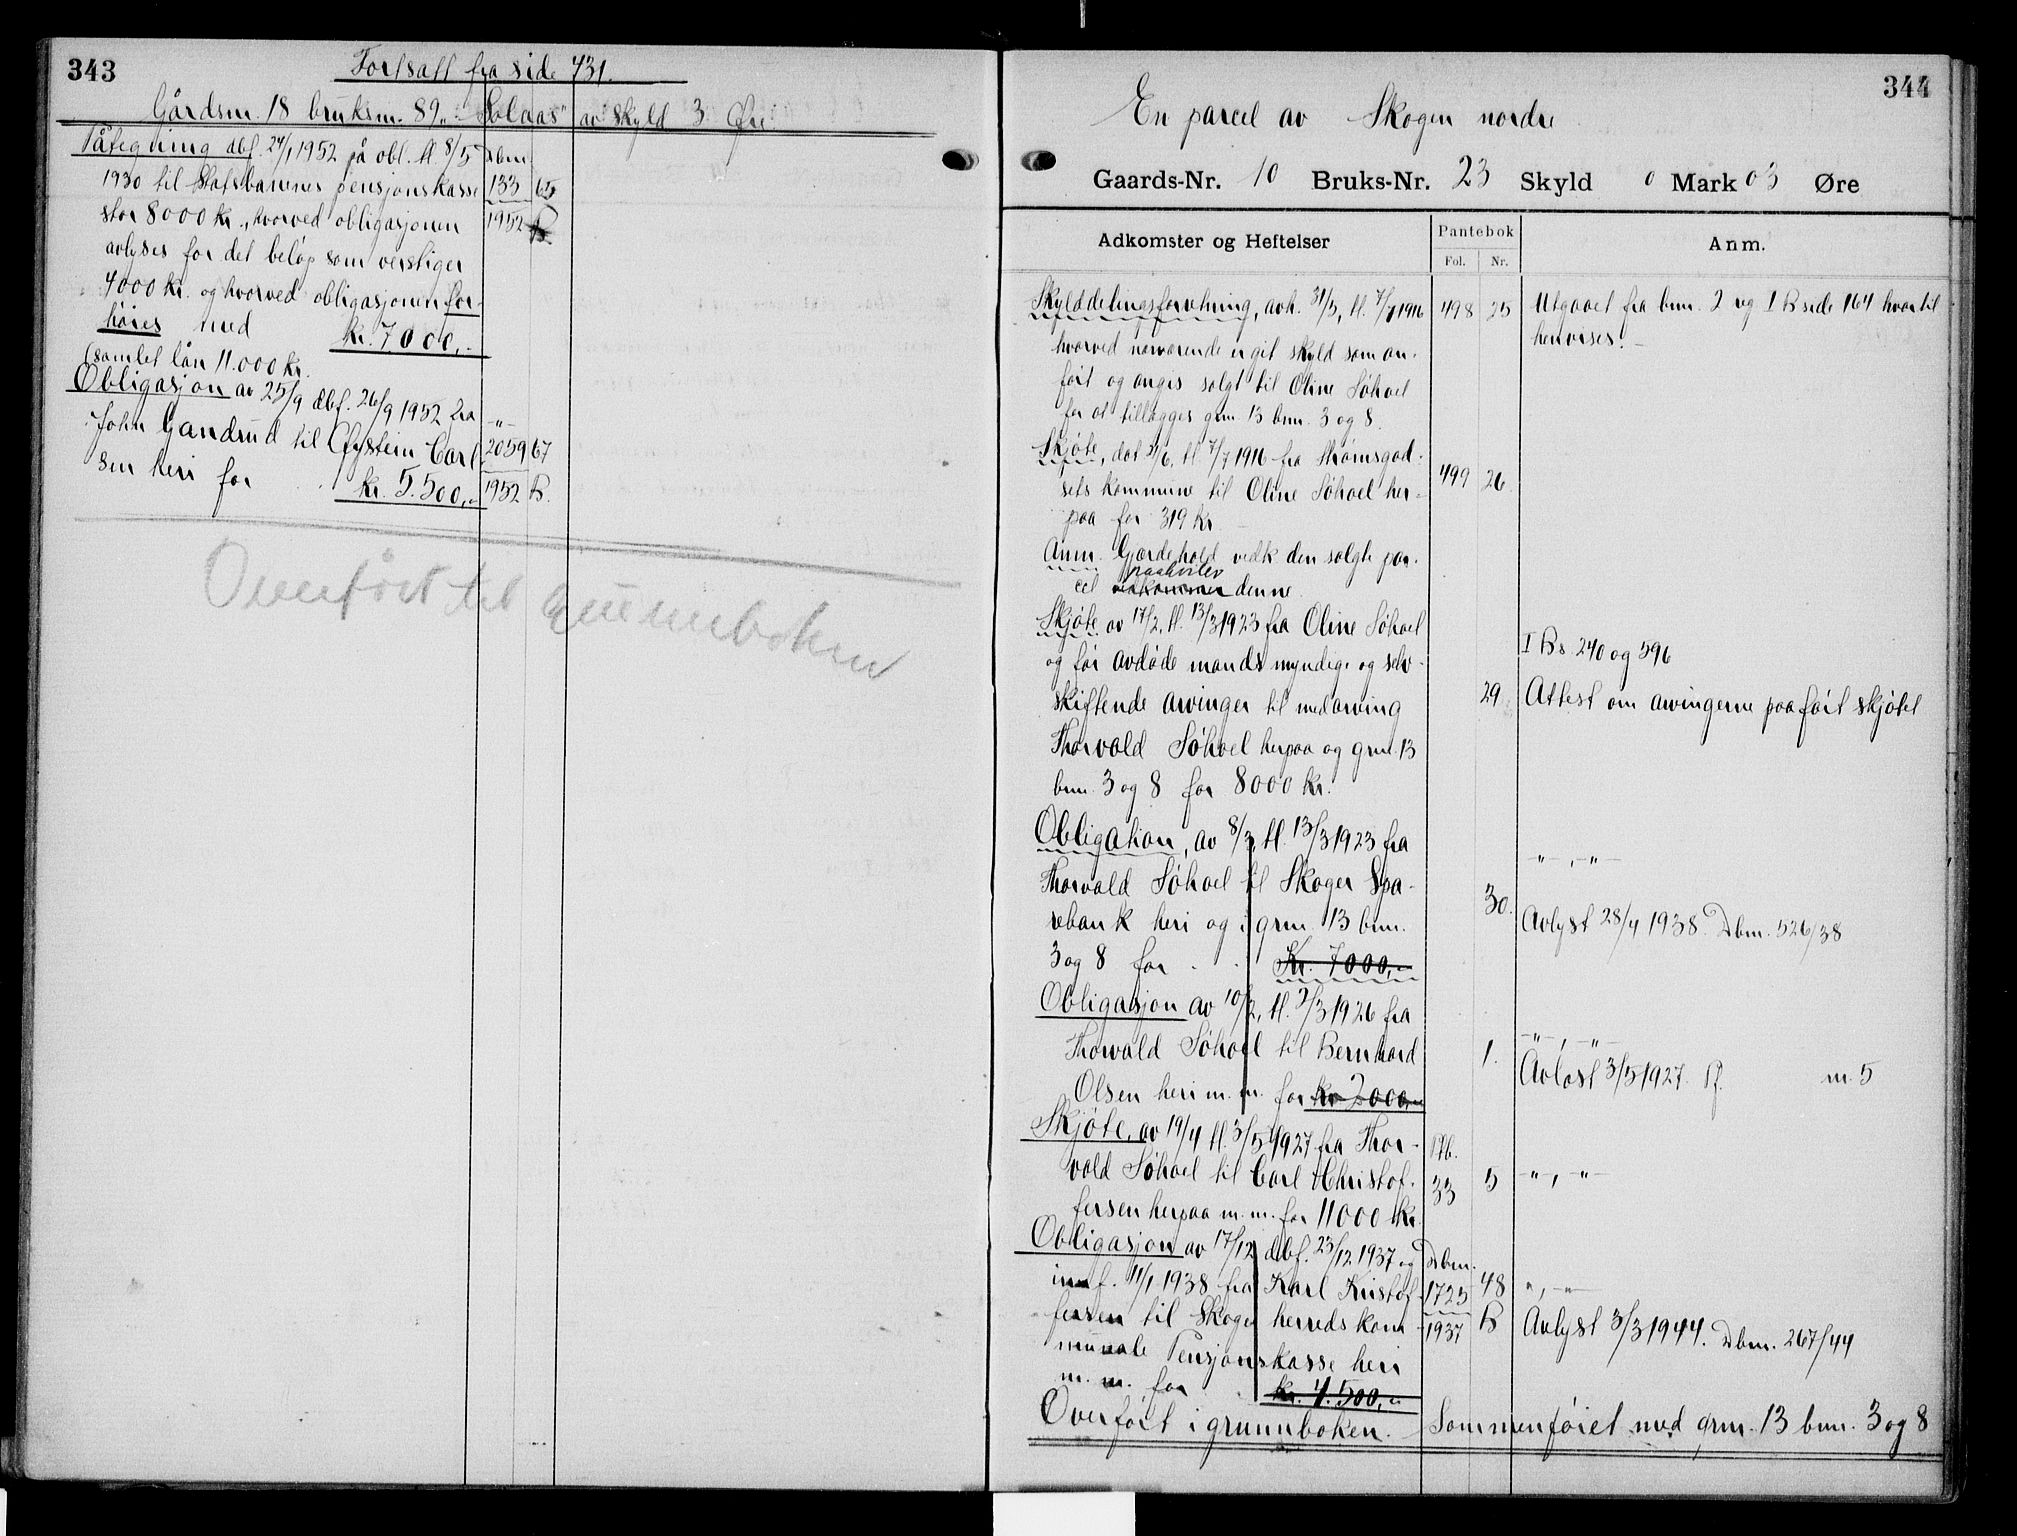 343
Fortsatt fra side 431.
Gårdsnr. 18 bruksnr. 89. "Solaas" av skyld 3 Øre.
Påtegning dbf. 24/1 1952 på obl. tl. 8/5 Dbnr.
1930 til Statsbanenes pensjonskasse 133
stor 8000 kr., hvorved obligasjonen 1952 B.
avlyses for det beløp som overstiger
4000 kr. og hvorved obligasjonen for-
høies med kr. 7.000,-
(samlet lån 11.000 kr.
Obligasjon av 25/9 dbf. 26/9 1952 fra "
John Gandrud til Øystein Carl- 2059 67
sen heri for kr. 5.500,- 1952 B.
Overført til grunnboken
344
En parcel av Skogen nordre
Gaards-Nr. 10 Bruks-Nr. 23 Skyld 0 Mark 03 Øre
Adkomster og Heftelser Pantebok Anm.
Fol. Nr.
Skylddelingsforretning, avh. 31/5, tl. 7/7 1916 498 25 Utgaaet fra bnr. 2 reg I B side 164 hvortil
hvorved nærværende er git skyld som an- henvises. -
ført og angis solgt til Oline Søhoel
for at tillægges gnr. 13 bnr. 3 og 8.
Skjøte, dat 3/6, tl. 7/7 1916 fra Strømsgod-
sets kommune til Oline Søhoel her- 499 26
paa for 319 kr.
Anm. Gjærdehold vedk den solgte par-
cel paahviler denne.
Skjøte av 17/2, tl. 13/3 1923 fra Oline Søhoel
og før avdøde mands myndige og selv- I B s 240 og 596
skiftende arvinger til medarving 29. Attest om arvingerne paaført skjøtet
Thorvald Søhoel herpaa og gnr. 13
bnr. 3 og 8 for 8000 kr.
Obligation, av 8/3, tl. 13/3 1923 fra
Thorvald Søhoel til Skoger Spa- -"-,-"-
rebank heri og i gnr. 13 bnr. 30. Avlyst 28/4 1938. Dbnr. 526/38
3 og 8 for Kr. 7000,-
Obligasjon av 10/2, tl. 2/3 1926 fra
Thorvald Søhoel til Bernhard 1. -"-,-"-
Olsen heri m. m. for kr 2000,- Avløst 3/5 1927. nr. 5
Skjøte, av 19/4 tl. 3/5 1927 fra Thor-
vald Søhoel til Carl Christof- 33 5 -"-,-"-
fersen herpaa m. m. for 11000 kr.
Obligasjon av 17/12 dbf. 23/12 1937 og Dbnr.
innf. 11/1 1938 fra Karl Kristof- 1725 48 -"-,-"-
fersen til Skoger herreds kom- 1937 B Avlyst 3/3 1944. Dbnr. 267/44
munale Pensjonskasse heri
m. m. for kr. 4.500,-
Overført i grunnboken. Sammenføiet med gnr. 13 bnr. 3 og 8